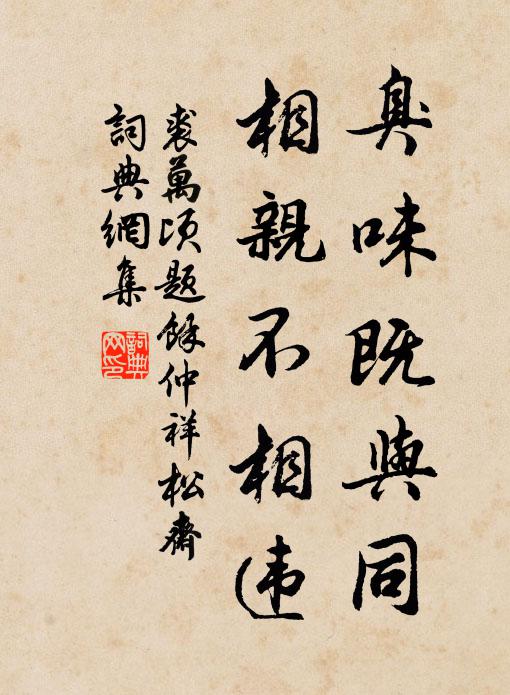 臭味既與同
相親不相违
裘萬頃題餘仲祥松齋
詞典網集
詞典网印